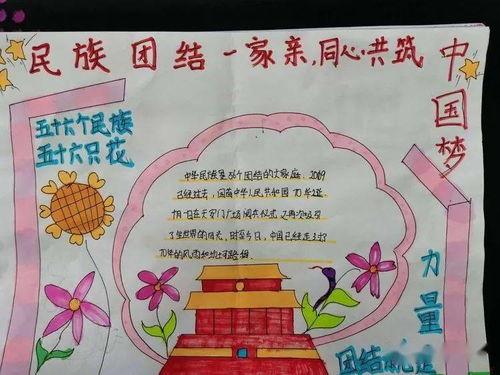 民族团结一家亲,同心共筑
中国梦
五十六个民族
五十六只花
中华民族是56个团结的大家庭。2019
已经过去,国庆中华人民共和国70华诞
10月1日在天安门广场阅兵仪式又再次吸引
了全世界的目光,时至今日,中国已经走过了
70年的风雨和坎坷路程
力量
团结就是